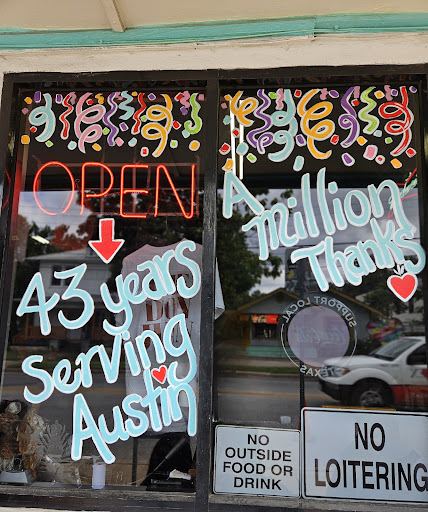 OPEN
43 years
serving
Austin
A
million
Thanks
SUPPORT LOCAL
TEXAS
NO
OUTSIDE
FOOD OR
DRINK
NO
LOITERING